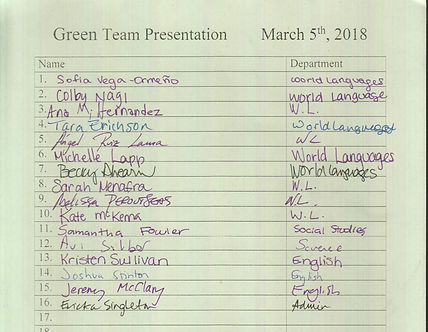 Green Team Presentation March 5th, 2018
Name Department
1. Sofia Vega-Ormeño World Languages
2. Colby Nagi World Language
3. Ana M. Hernandez W.L.
4. Tara Erichson World Languages
5. Angel Ruiz Laura WL
6. Michelle Lapp World Languages
7. Becky Ahearn World Languages
8. Sarah Menafra W.L.
9. Melissa WL.
10. Kate McKenna W.L.
11. Samantha Fowler Social Studies
12. Avi Silber Science
13. Kristen Sullivan English
14. Joshua English
15. Jeremy McClary English
16. Ericka Singleton Admin
17.